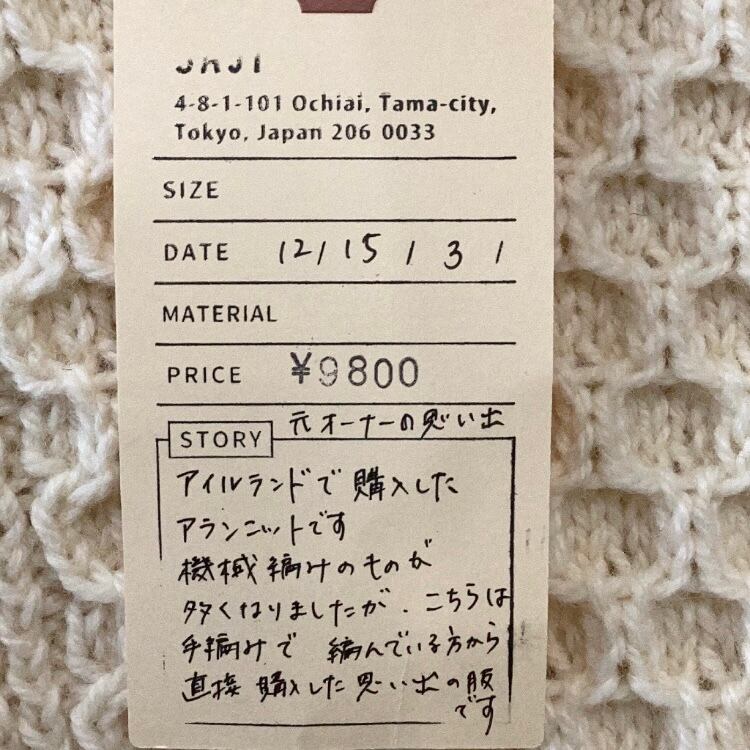 4-8-1-101 Ochiai, Tama-city,
Tokyo, Japan 206 0033
SIZE
DATE 12/15/31
MATERIAL
PRICE ¥9800
元オーナーの思い出
STORY
アイルランドで購入した
アランニットです
機械編みのものが
多くなりましたが、こちらは
手編みで 編んでいる方から
直接購入した思い出の服
です